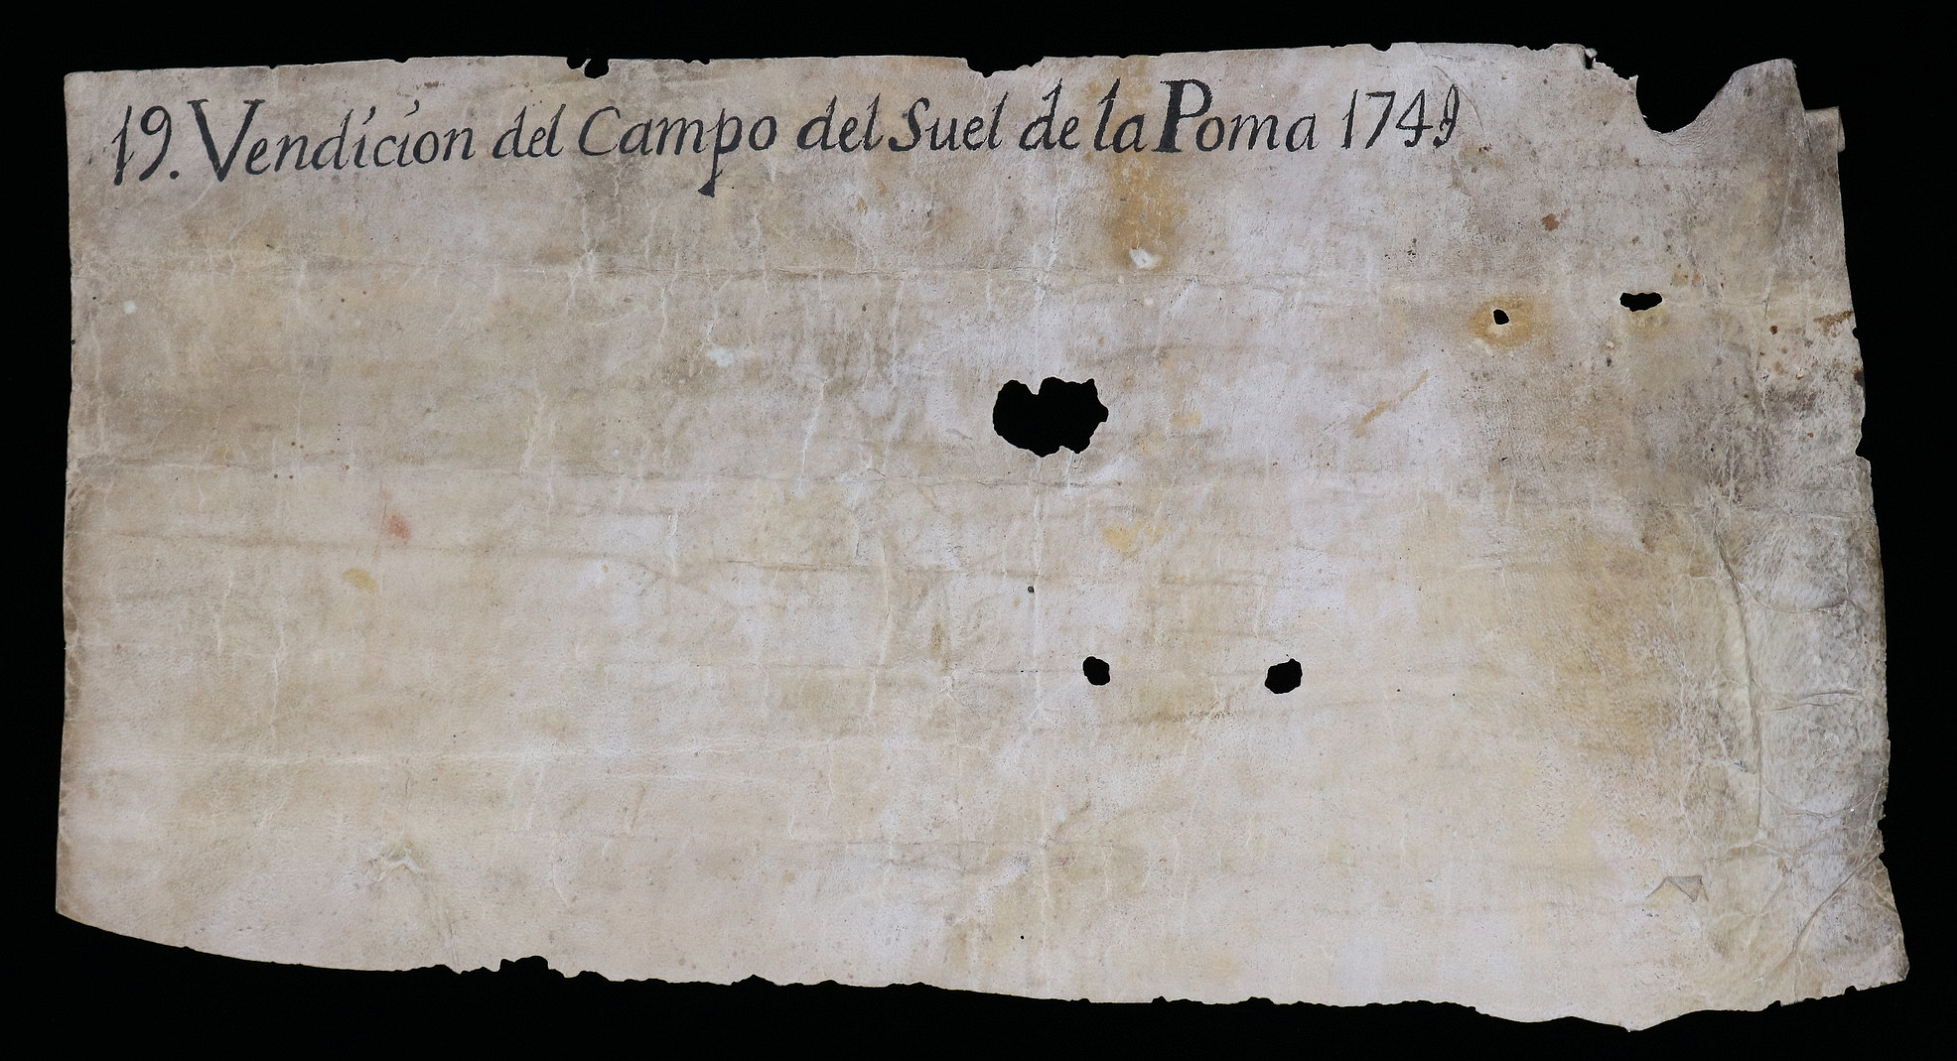 19. Vendicion del Campo del Suel de la Poma 1749